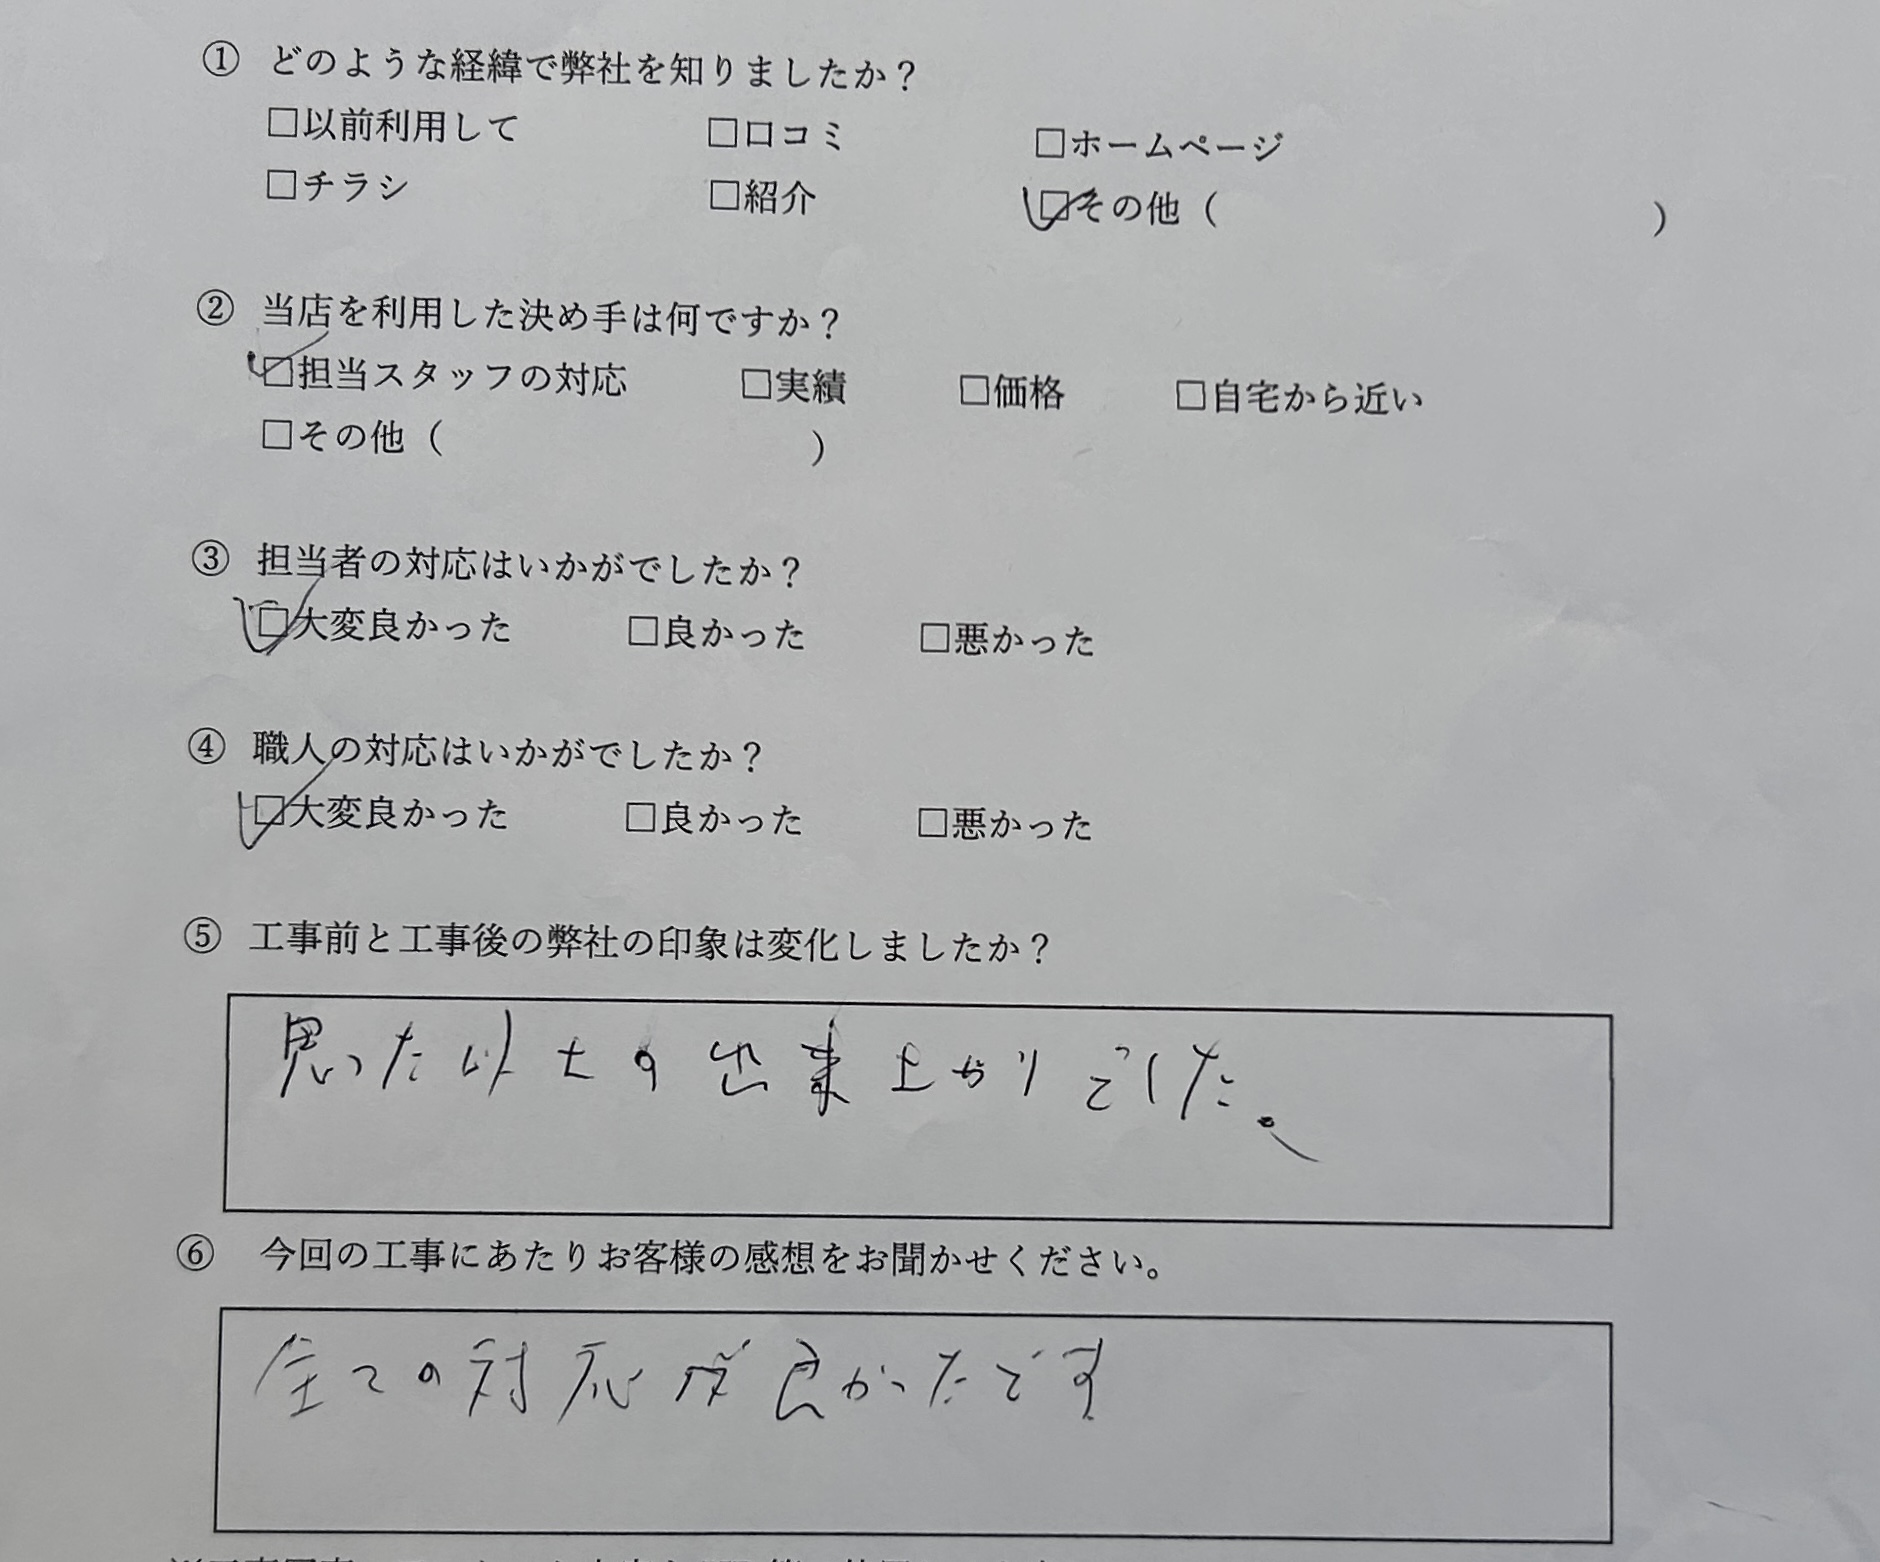 ① どのような経緯で弊社を知りましたか？
□以前利用して □口コミ □ホームページ
□チラシ □紹介 ☑その他（ ）
② 当店を利用した決め手は何ですか？
☑担当スタッフの対応 □実績 □価格 □自宅から近い
□その他（ ）
③ 担当者の対応はいかがでしたか？
☑大変良かった □良かった □悪かった
④ 職人の対応はいかがでしたか？
☑大変良かった □良かった □悪かった
⑤ 工事前と工事後の弊社の印象は変化しましたか？
思った以上の出来上がりでした。
⑥ 今回の工事にあたりお客様の感想をお聞かせください。
全ての対応が良かったです